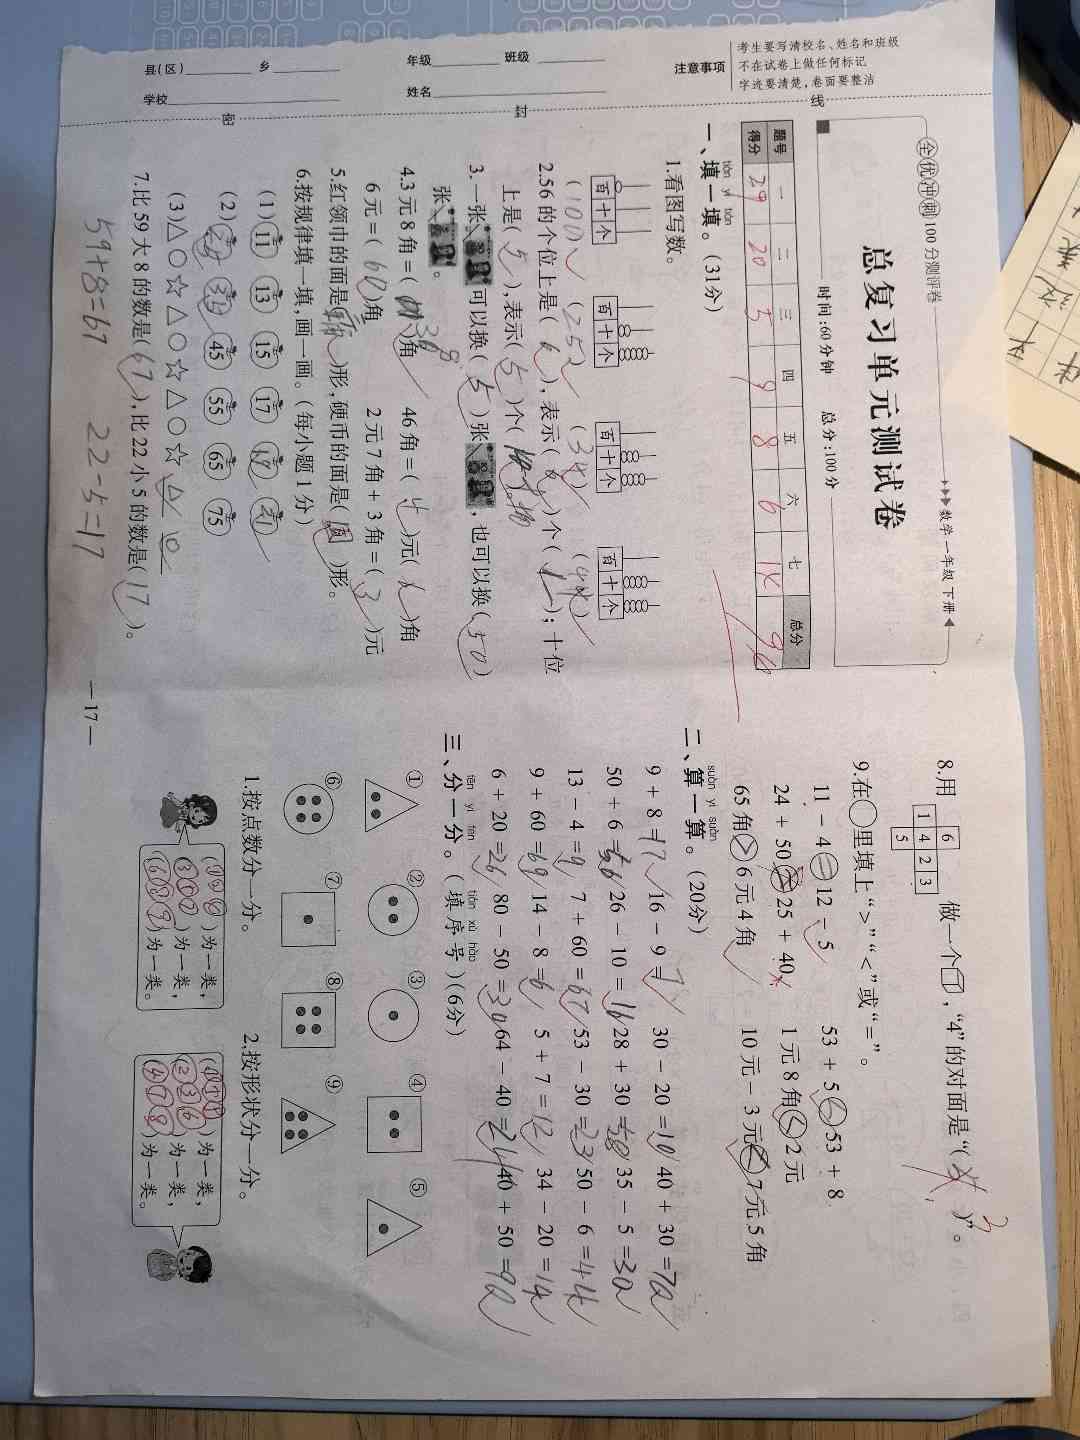 县(区)________ 乡________
学校________
年级________ 班级________
姓名________
注意事项
考生要写清校名、姓名和班级
不在试卷上做任何标记
字迹要清楚,卷面要整洁
密 封 线
全优冲刺100分测评卷
数学 一年级 下册
总复习单元测试卷
时间:60分钟 总分:100分
题号 一 二 三 四 五 六 七 总分
得分 29 20 5 9 8 6 96
tián yì tián
一、填一填。(31分)
1.看图写数。
百十个 百十个 百十个 百十个
(100) (252) (34) (44)
2.56的个位上是(6),表示(6)个( );十位
上是(5),表示(5)个( )
3.一张 可以换(5)张 ,也可以换(50)
张 。
4.3元8角=(38)角 46角=(4)元(6)角
6元=(60)角 2元7角+3角=(3)元
5.红领巾的面是( )形,硬币的面是(圆)形。
6.按规律填一填,画一画。(每小题1分)
(1) 11 13 15 17 19 21
(2) 45 55 65 75
(3)△○☆△○☆△○☆△○
7.比59大8的数是(67),比22小5的数是(17)。
59+8=67 22-5=17
—17—
8.用 做一个 ,“4”的对面是“( )”。
3
6
1 4 2 3
5
9.在○里填上“>”“<”或“=”。
11-4=12-5 53+5<53+8
24+50 25+40 1元8角<2元
65角>6元4角 10元-3元<7元5角
suàn yì suàn
二、算一算。(20分)
9+8=17 16-9=7 30-20=10 40+30=70
50+6=56 26-10=16 28+30=58 35-5=30
13-4=9 7+60=67 53-30=23 50-6=44
9+60=69 14-8=6 5+7=12 34-20=14
6+20=26 80-50=30 64-40=24 40+50=90
fēn yì fēn tián xù hào
三、分一分。(填序号)(6分)
① ② ③ ④ ⑤
⑥ ⑦ ⑧ ⑨
1.按点数分一分。
( )为一类,
( )为一类,
( )为一类。
2.按形状分一分。
( )为一类,
(②③⑥)为一类,
(④⑦⑧)为一类。